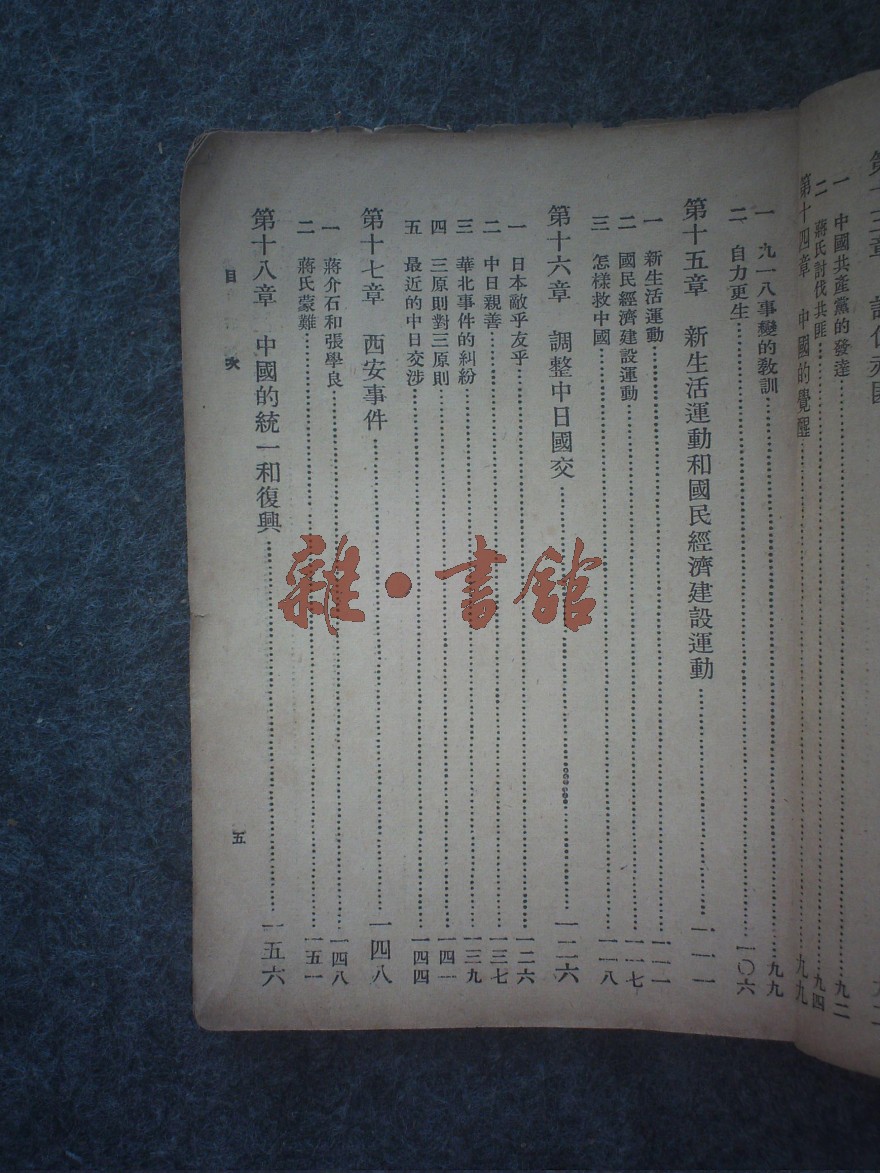 一 中國共產黨的發達……九二
二 蔣氏討伐共匪……九四
第十四章 中國的覺醒……九九
一 九一八事變的教訓……九九
二 自力更生……一〇六
第十五章 新生活運動和國民經濟建設運動……一一一
一 新生活運動……一一一
二 國民經濟建設運動……一一七
三 怎樣救中國……一一八
第十六章 調整中日國交……一二六
一 日本敵乎友乎……一二六
二 中日親善……一三七
三 華北事件的糾紛……一三九
四 三原則對三原則……一四一
五 最近的中日交涉……一四四
第十七章 西安事件……一四八
一 蔣介石和張學良……一四八
二 蔣氏蒙難……一五一
第十八章 中國的統一和復興……一五六
目次 五
雜·書館